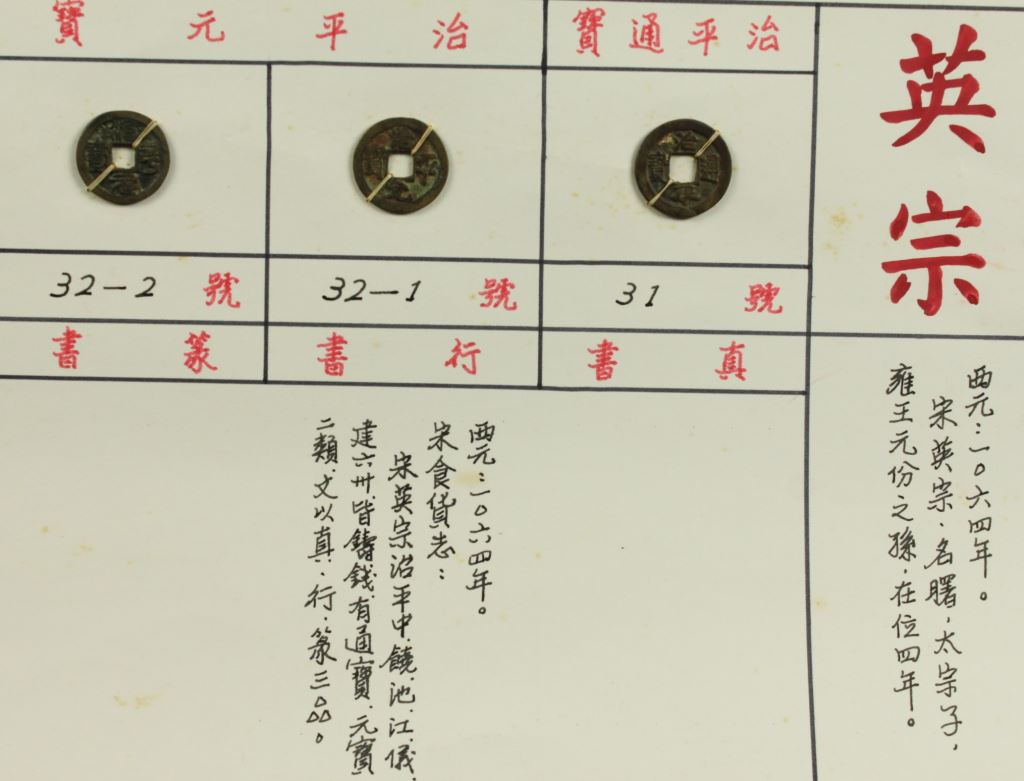 英宗
西元：一〇六四年。
宋英宗、名曙，太宗子，
雍王元份之孫，在位四年。
治平通寶
治平元寶
治平通寶
號 31
號 32-1
號 32-2
真書
行書
篆書
西元：一〇六四年。
宋食貨志：
宋英宗治平中、饒、池、江、儀、
建六卅、皆鑄錢、有通寶、元寶
二類、文以真、行、篆三品。